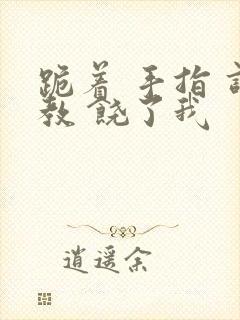 跪着 手指 调
教 饶了我
逍遥余